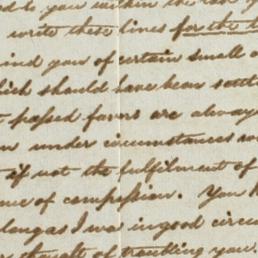 to you within the
write these lines for the
ind you of certain small
hich should have been settl
passed favors are alway
under circumstances
if not the fulfilment of
of compassion. You
long as I was in good circu
thought of troubling you.